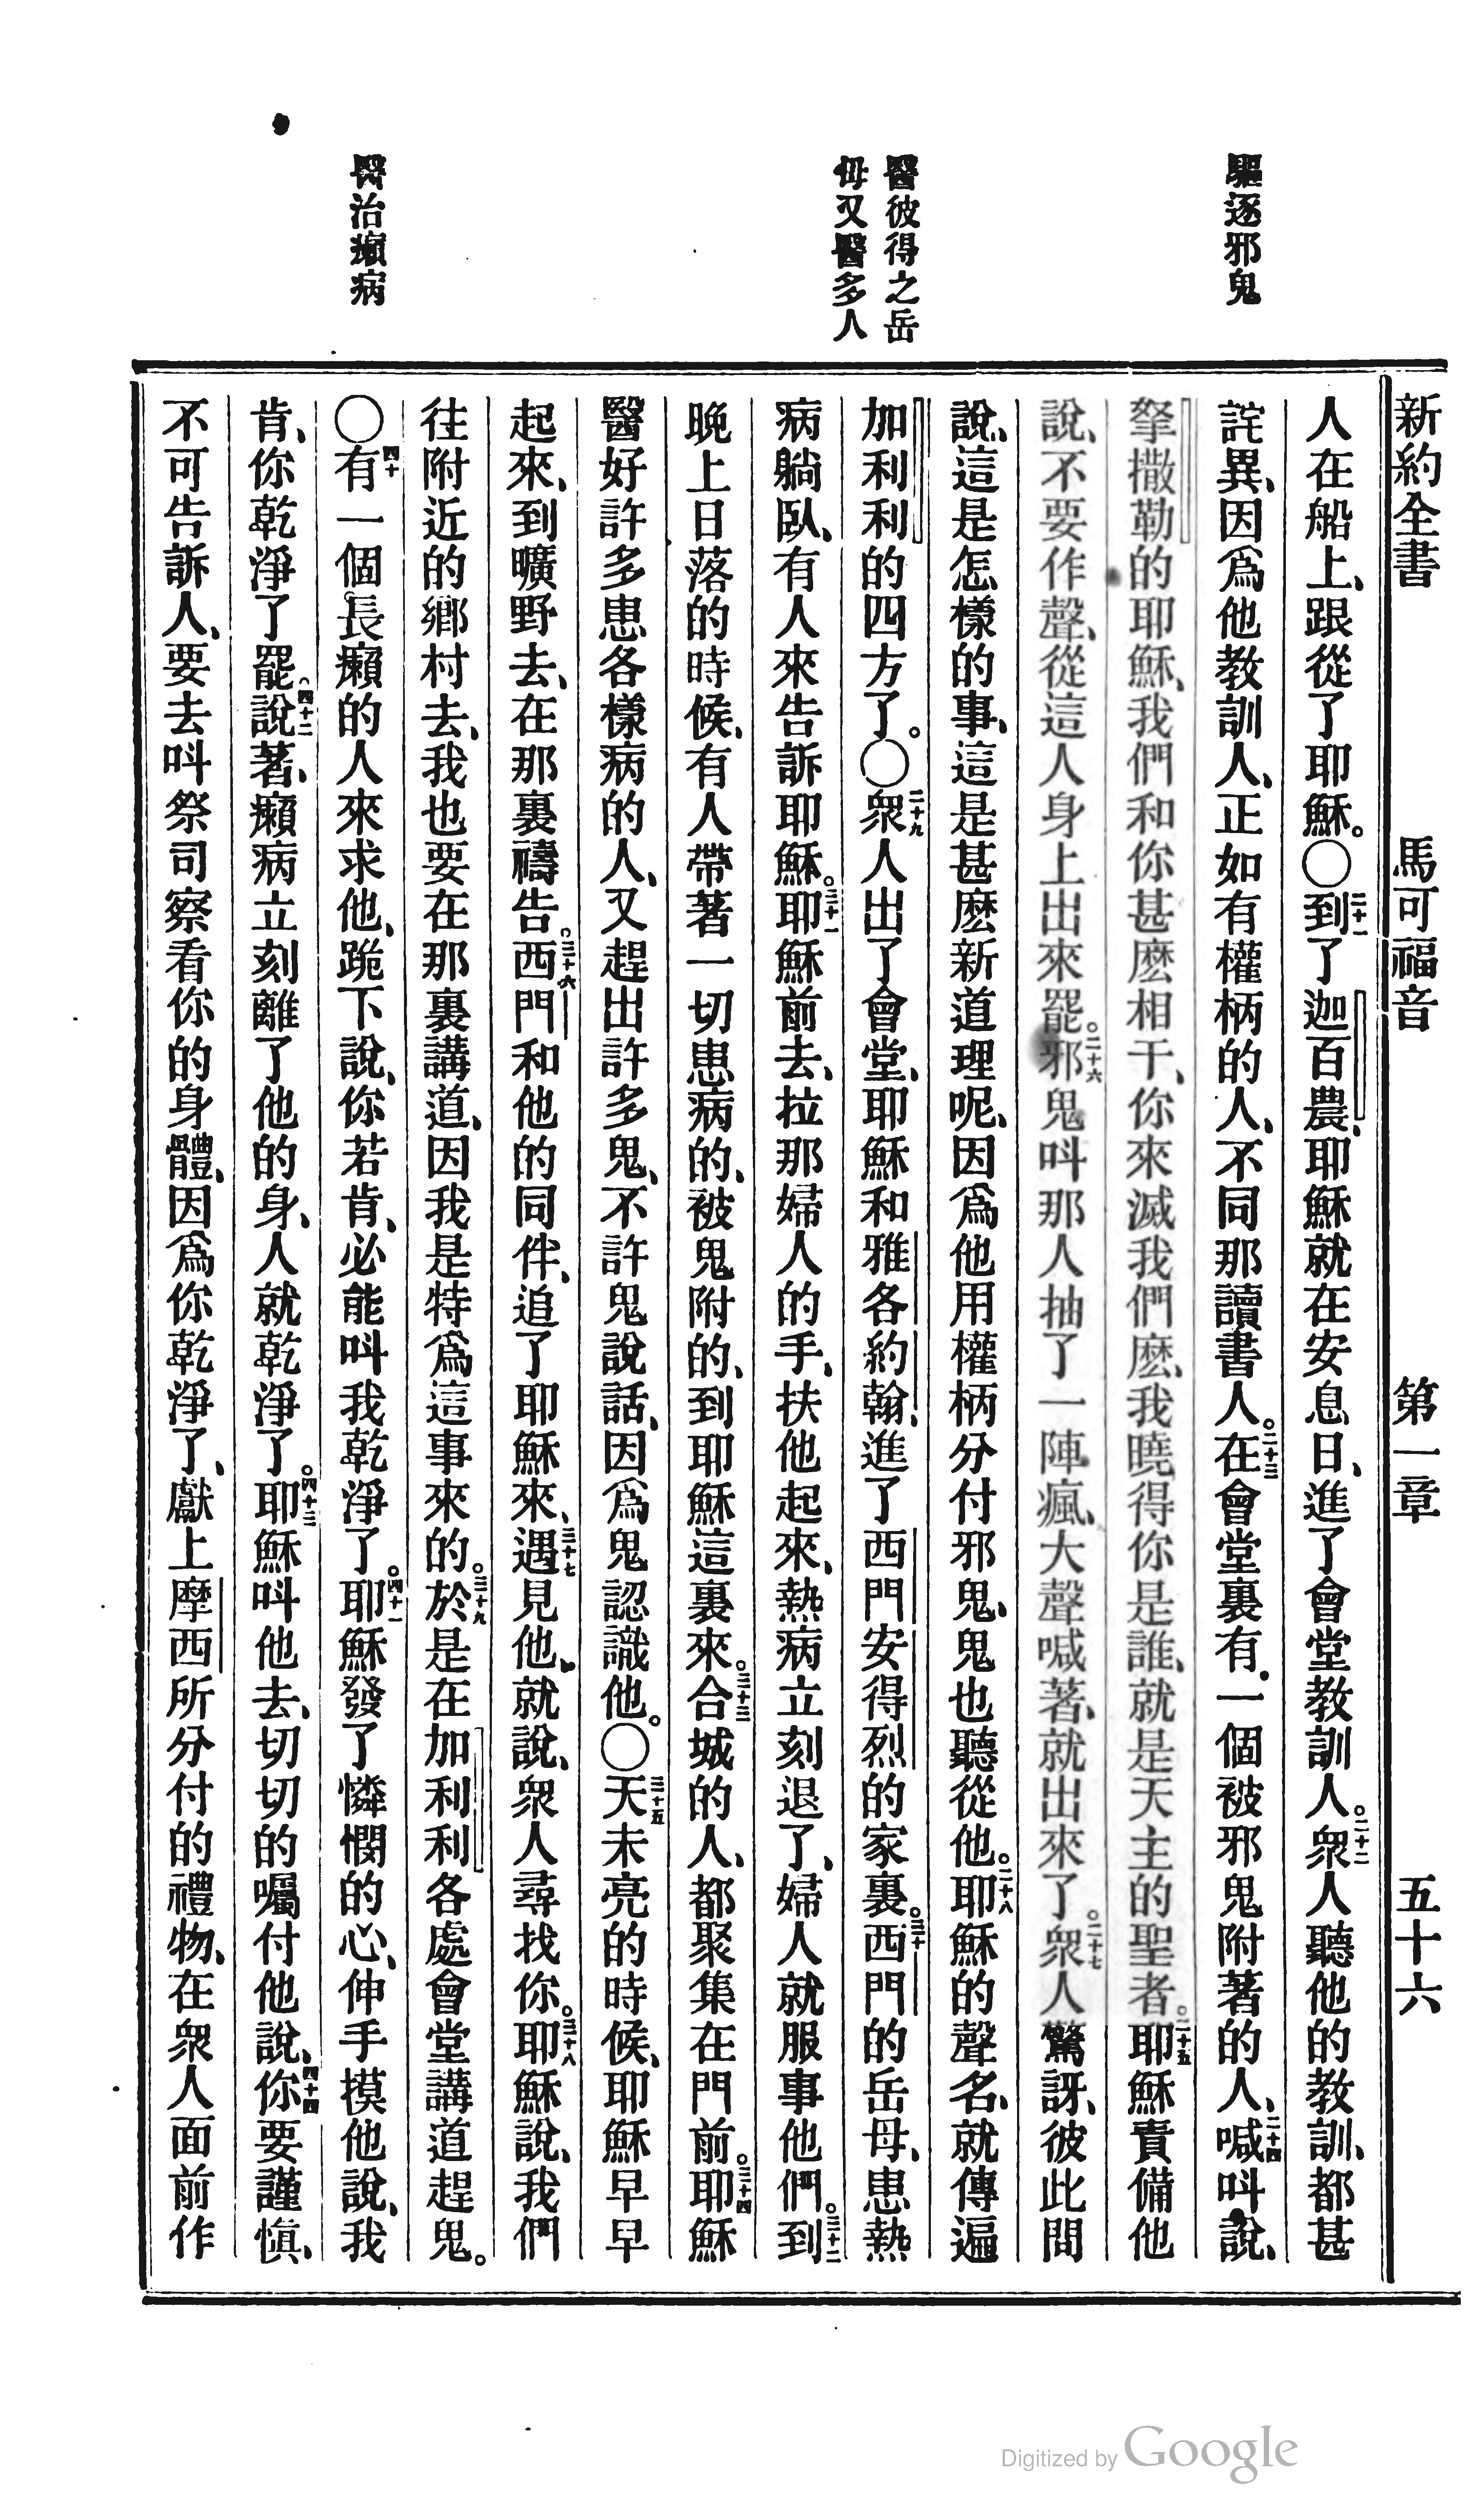 新約全書 馬可福音 第一章 五十六
驅逐邪鬼
醫彼得之岳
母又醫多人
醫治癩病
人在船上、跟從了耶穌。〇二十一到了迦百農、耶穌就在安息日、進了會堂教訓人。二十二衆人聽他的教訓、都甚
詫異、因爲他教訓人、正如有權柄的人、不同那讀書人。二十三在會堂裏有一個被邪鬼附著的人、二十四喊呌說、
拏撒勒的耶穌、我們和你甚麽相干、你來滅我們麽、我曉得你是誰、就是天主的聖者。二十五耶穌責備他
說、不要作聲、從這人身上出來罷。二十六邪鬼呌那人抽了一陣瘋、大聲喊著、就出來了。二十七衆人驚訝、彼此間
說、這是怎樣的事、這是甚麽新道理呢、因爲他用權柄分付邪鬼、鬼也聽從他。二十八耶穌的聲名、就傳遍
加利利的四方了。〇二十九衆人出了會堂、耶穌和雅各約翰、進了西門安得烈的家裏。三十西門的岳母、患熱
病躺臥、有人來告訴耶穌。三十一耶穌前去、拉那婦人的手、扶他起來、熱病立刻退了、婦人就服事他們。三十二到
晚上日落的時候、有人帶著一切患病的、被鬼附的、到耶穌這裏來。三十三合城的人、都聚集在門前。三十四耶穌
醫好許多患各樣病的人、又趕出許多鬼、不許鬼說話、因爲鬼認識他。〇三十五天未亮的時候、耶穌早早
起來、到曠野去、在那裏禱告。三十六西門和他的同伴、追了耶穌來、三十七遇見他、就說、衆人尋找你。三十八耶穌說、我們
往附近的鄉村去、我也要在那裏講道、因我是特爲這事來的。三十九於是在加利利各處會堂講道趕鬼。
〇四十有一個長癩的人來求他、跪下說、你若肯、必能呌我乾淨了。四十一耶穌發了憐憫的心、伸手摸他說、我
肯、你乾淨了罷。四十二說著、癩病立刻離了他的身、人就乾淨了。四十三耶穌呌他去、切切的囑付他說、四十四你要謹慎、
不可告訴人、要去呌祭司察看你的身體、因爲你乾淨了、獻上摩西所分付的禮物、在衆人面前作
Digitized by Google